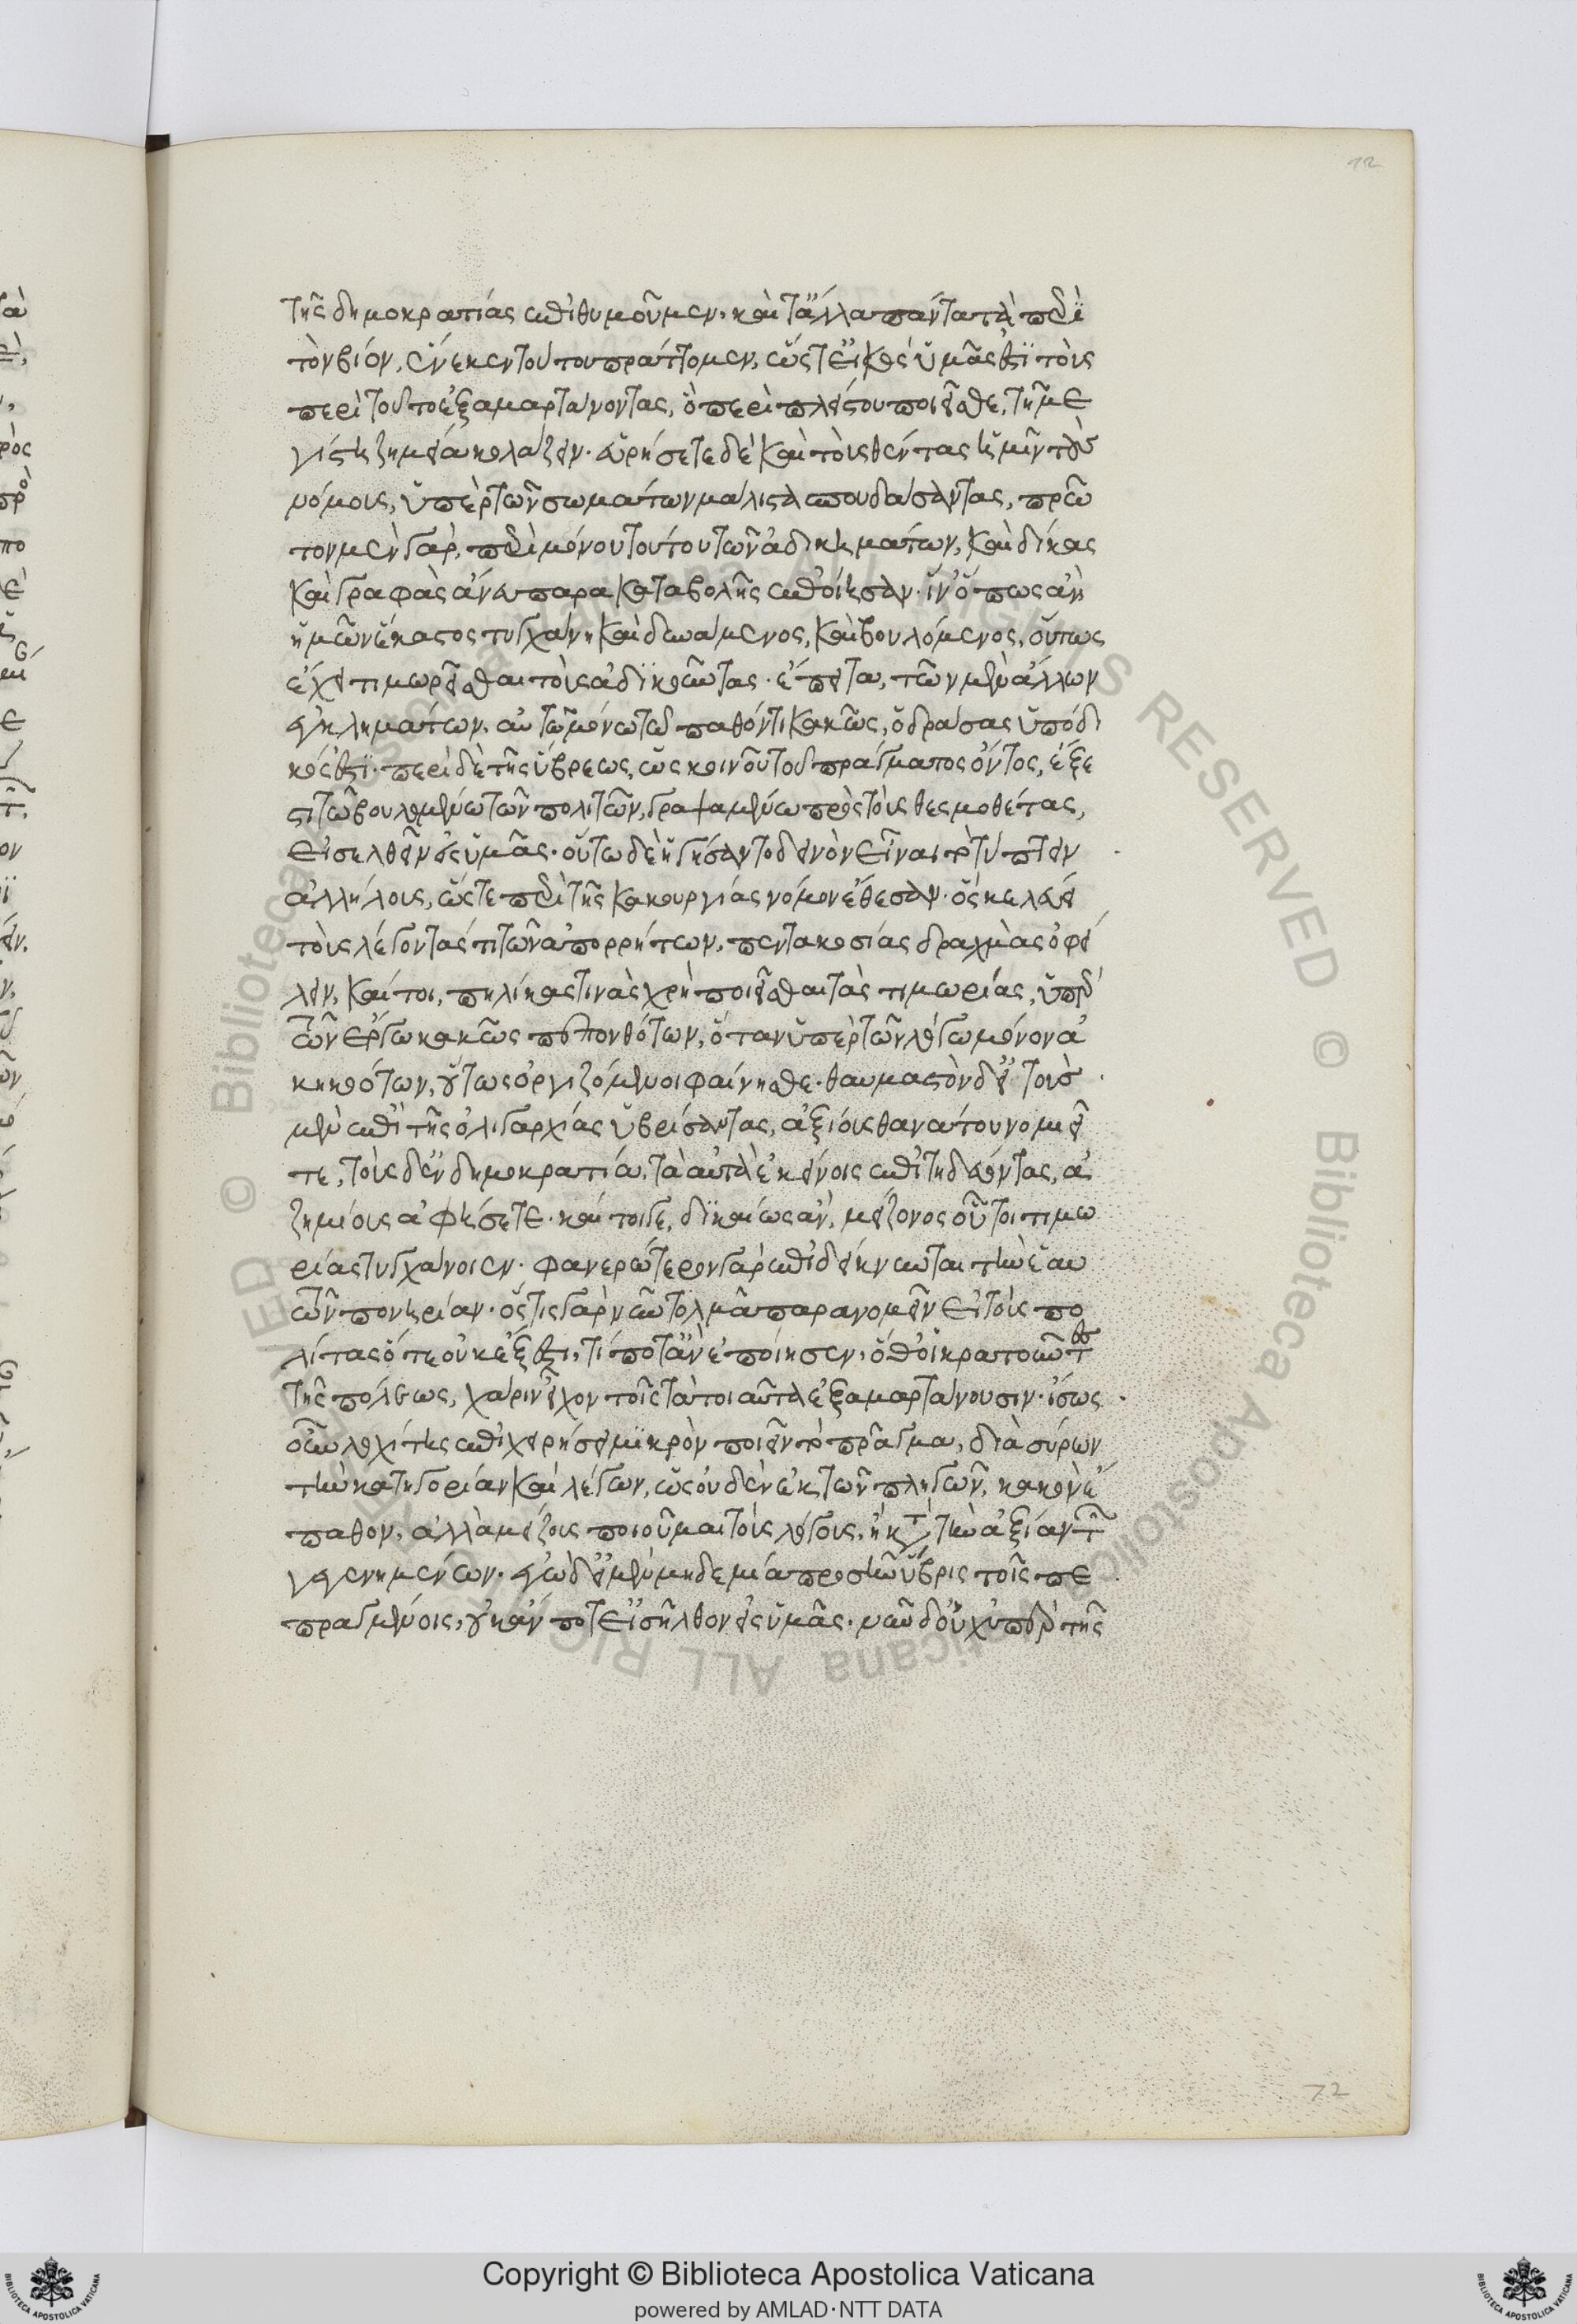 12
τῆς δημοκρατίας ἐπιθυμοῦμεν, καὶ τἄλλα πάντα τὰ περὶ
τὸν βίον, ἕνεκεν τούτου πράττομεν, ὥστ' εἰκὸς ὑμᾶς ἐστὶ τοὺς
περὶ τοῦτο ἐξαμαρτάνοντας, ὃ περὶ πλείστου ποιεῖσθε, τῇ με
γίστη ζημία κολάζειν· εὑρήσετε δὲ καὶ τοὺς θέντας ἡμῖν τοὺς
νόμους, ὑπὲρ τῶν σωμάτων μάλιστα σπουδάσαντας, πρῶ
τον μὲν γὰρ, περὶ μόνου τούτου τῶν ἀδικημάτων, καὶ δίκας
καὶ γραφὰς ἄνευ παρακαταβολῆς ἐποίησαν· ἵν' ὅπως ἂν
ἡμῶν ἕκαστος τυγχάνη καὶ δυνάμενος, καὶ βουλόμενος, οὕτως
ἔχει τιμωρεῖσθαι τοὺς ἀδικοῦντας· ἔπειτα, τῶν μὲν ἄλλων
ἐγκλημάτων, αὐτῶ μόνω τῶ παθόντι κακῶς, ὁ δράσας ὑπόδι
κός ἐστι· περὶ δὲ τῆς ὕβρεως, ὡς κοινοῦ τοῦ πράγματος ὄντος, ἔξε
στι τῶ βουλομένω τῶν πολιτῶν, γραψαμένω πρὸς τοὺς θεσμοθέτας,
εἰσελθεῖν εἰς ὑμᾶς· οὕτω δὲ ἡγήσαντο δεινὸν εἶναι τὸ τύπτειν
ἀλλήλους, ὥστε περὶ τῆς κακουργίας νόμον ἔθεσαν· ὃς κελεύει
τοὺς λέγοντάς τι τῶν ἀπορρήτων, πεντακοσίας δραχμὰς ὀφεί
λειν, καί τοι, πηλίκας τινὰς χρὴ ποιεῖσθαι τὰς τιμωρίας, ὑπὲρ
τῶν ἔργω κακῶς πεπονθότων, ὅταν ὑπὲρ τῶν λόγω μόνον ἀ
κηκοότων, οὕτως ὀργιζόμενοι φαίνησθε· θαυμαστὸν δ' εἰ τοὺς
μὲν ἐπὶ τῆς ὀλιγαρχίας ὑβρίσαντας, ἀξίους θανάτου νομιεῖ
τε, τοὺς δ' ἐν δημοκρατία, τὰ αὐτὰ ἐκείνοις ἐπιτηδεύοντας, ἀ
ζημίους ἀφήσετε· καί τοι γε, δικαίως ἂν, μείζονος οὗτοι τιμω
ρίας τυγχάνοιεν· φανερώτερον γὰρ ἐπιδείκνυνται τὴν ἑαυ
τῶν πονηρίαν· ὅστις γὰρ νῦν τολμᾶ παρανομεῖν εἰς τοὺς πο
λίτας ὅτε οὐκ ἔξεστι, τί ποτ' ἂν ἐποίησεν, ὅθ' οἱ κρατοῦντες
τῆς πόλεως, χάριν εἶχον τοῖς τὰ τοιαῦτα ἐξαμαρτάνουσιν· ἴσως
οὖν λοχίτης ἐπιχειρήσει μικρὸν ποιεῖν τὸ πρᾶγμα, διασύρων
τὴν κατηγορίαν καὶ λέγων, ὡς οὐδὲν ἐκ τῶν πληγῶν, κακὸν ἔ
παθον, ἀλλὰ μείζους ποιοῦμαι τοὺς λόγους, ἢ κατὰ τὴν ἀξίαν τῶν
γεγενημένων· ἐγὼ δ' εἰ μὲν μηδεμία προσῆν ὕβρις τοῖς πε
πραγμένοις, οὐκ ἄν ποτ' εἰσῆλθον εἰς ὑμᾶς· νῦν δ' οὐχ ὑπὲρ τῆς
72
Copyright © Biblioteca Apostolica Vaticana
powered by AMLAD·NTT DATA